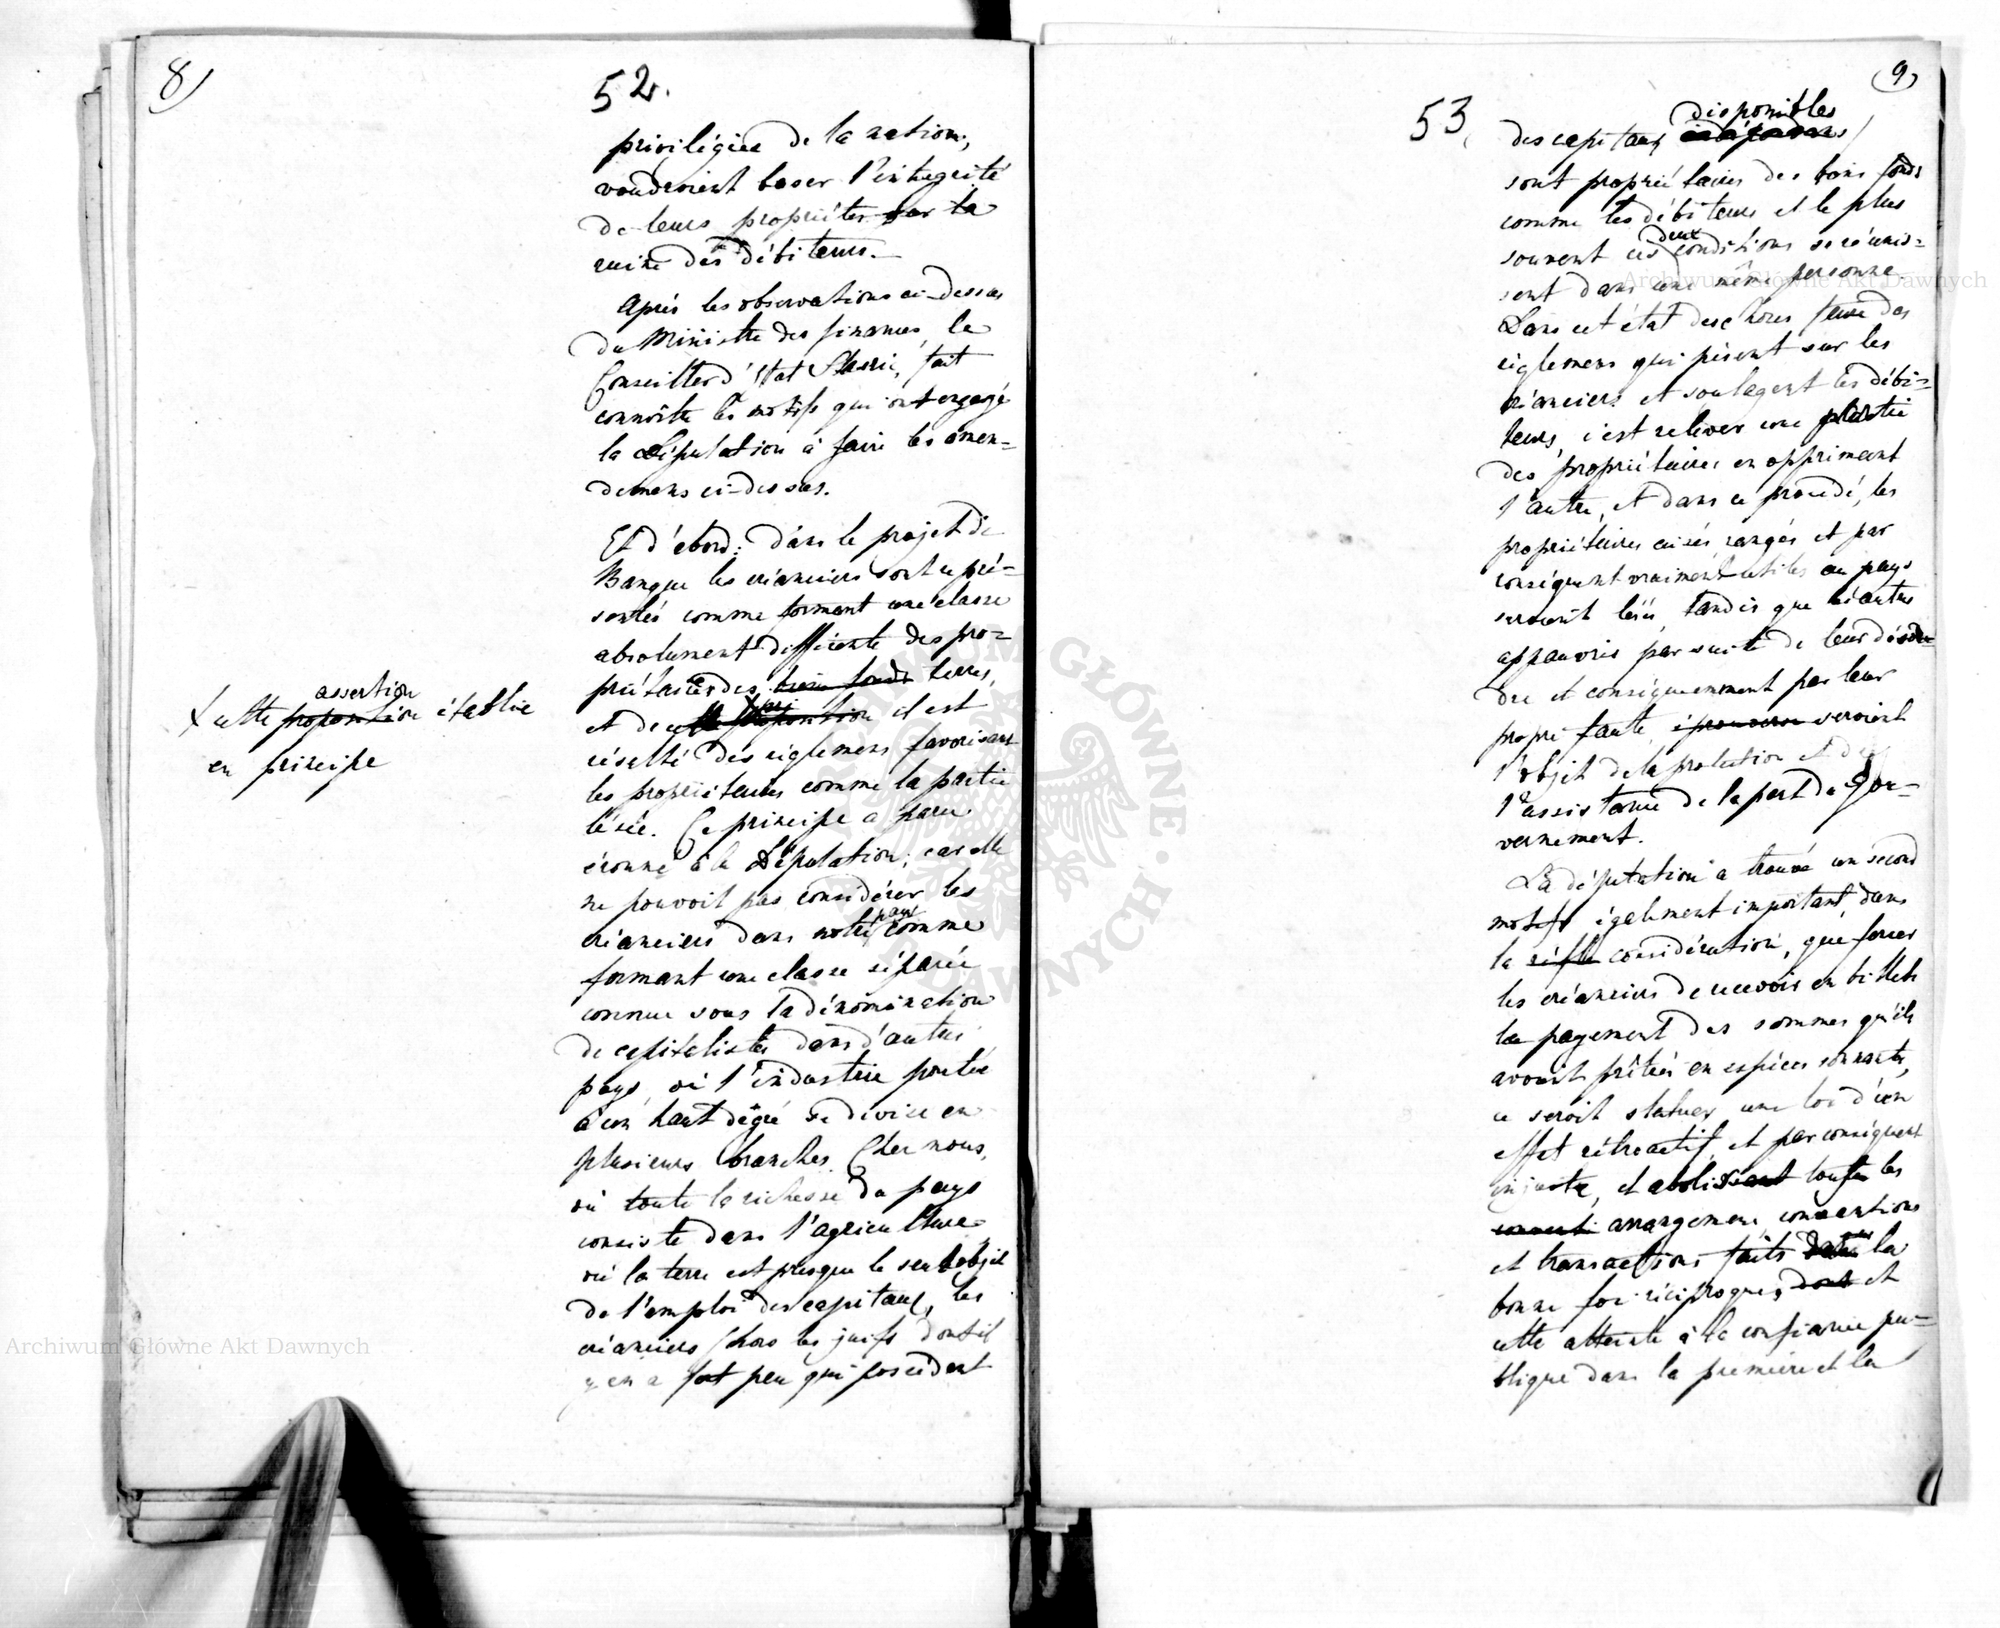 8)
52.
privilégiée de la nation,
voudroient baser l'intégrité
de leurs propriétés sur la
ruine des débiteurs.
Après les observations ci-dessus
du Ministre des finances, le
Conseiller d'Etat fait
connoître les motifs qui ont engagé
la Députation à faire les amen=
demens ci-dessus.
Et d'abord: dans le projet de
Banque les créanciers sont repré=
sentés comme formant une classe
absolument différente des pro=
priétaires des biens fonds terres,
et de cette proposition il est
résulté des règlemens favorisant
les propriétaires comme la partie
lésée. Ce principe a paru
éronné à la Députation; car elle
ne pouvoit pas considérer les
créanciers dans notre pays comme
formant une classe séparée
connue sous la dénomination
de capitalistes dans d'autres
pays, où l'industrie portée
à un haut dégré se divise en
plusieurs branches. Chez nous,
où toute la richesse du pays
consiste dans l'agriculture
où la terre est presque le seul objet
de l'emploi des capitaux, les
créanciers (hors les juifs dont il
y en a fort peu qui possèdent
X cette proposition assertion établie
en principe
9)
53
des capitaux disponibles)
sont propriétaires des biens fonds
comme les débiteurs et le plus
souvent ces deux conditions se réunis=
sent dans une même personne.
Dans cet état des choses faire des
règlemens qui pèsent sur les
créanciers et soulagent les débi=
teurs, c'est relever une partie
des propriétaires en opprimant
l'autre, et dans ce procédé, les
propriétaires aisés, rangés et par
conséquent vraiment utiles au pays
seroient lésés, tandis que les autres
appauvris par suite de leur désor=
dre et conséquemment par leur
propre faute, éprouver seroient
l'objet de la protection et de
l'assistance de la part du Gou=
vernement.
La députation a trouvé un second
motif également important, dans
la considération, que forcer
les créanciers de recevoir en billets
le payement des sommes qu'ils
avoient prêtées en espèces sonnantes,
ce seroit statuer une loi d'un
effet rétroactif, et par conséquent
injuste, et abolissant toutes les
conventi arrangemens, conventions
et transactions faits dans la
bonne foi réciproque, dont et
cette atteinte à la confiance pu=
blique dans la première et la
Archiwum Główne Akt Dawnych
Archiwum Główne Akt Dawnych
ARCHIWUM GŁÓWNE AKT DAWNYCH